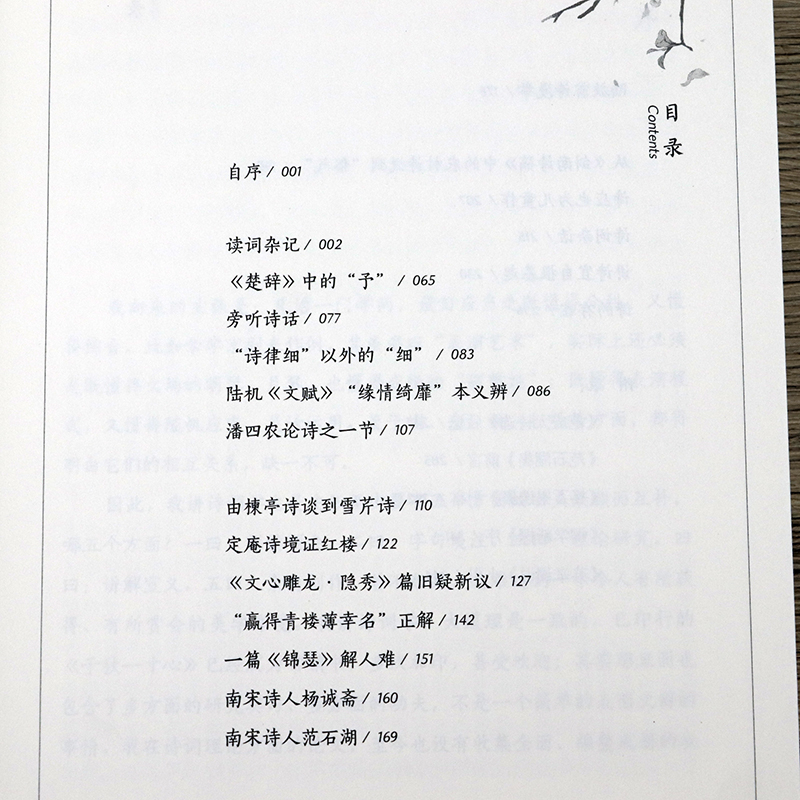 目录
Contents
自序 / 001
读词杂记 / 002
《楚辞》中的“予” / 065
旁听诗话 / 077
“诗律细”以外的“细” / 083
陆机《文赋》“缘情绮靡”本义辨 / 086
潘四农论诗之一节 / 107
由楝亭诗谈到雪芹诗 / 110
定庵诗境证红楼 / 122
《文心雕龙·隐秀》篇旧疑新议 / 127
“赢得青楼薄幸名”正解 / 142
一篇《锦瑟》解人难 / 151
南宋诗人杨诚斋 / 160
南宋诗人范石湖 / 169